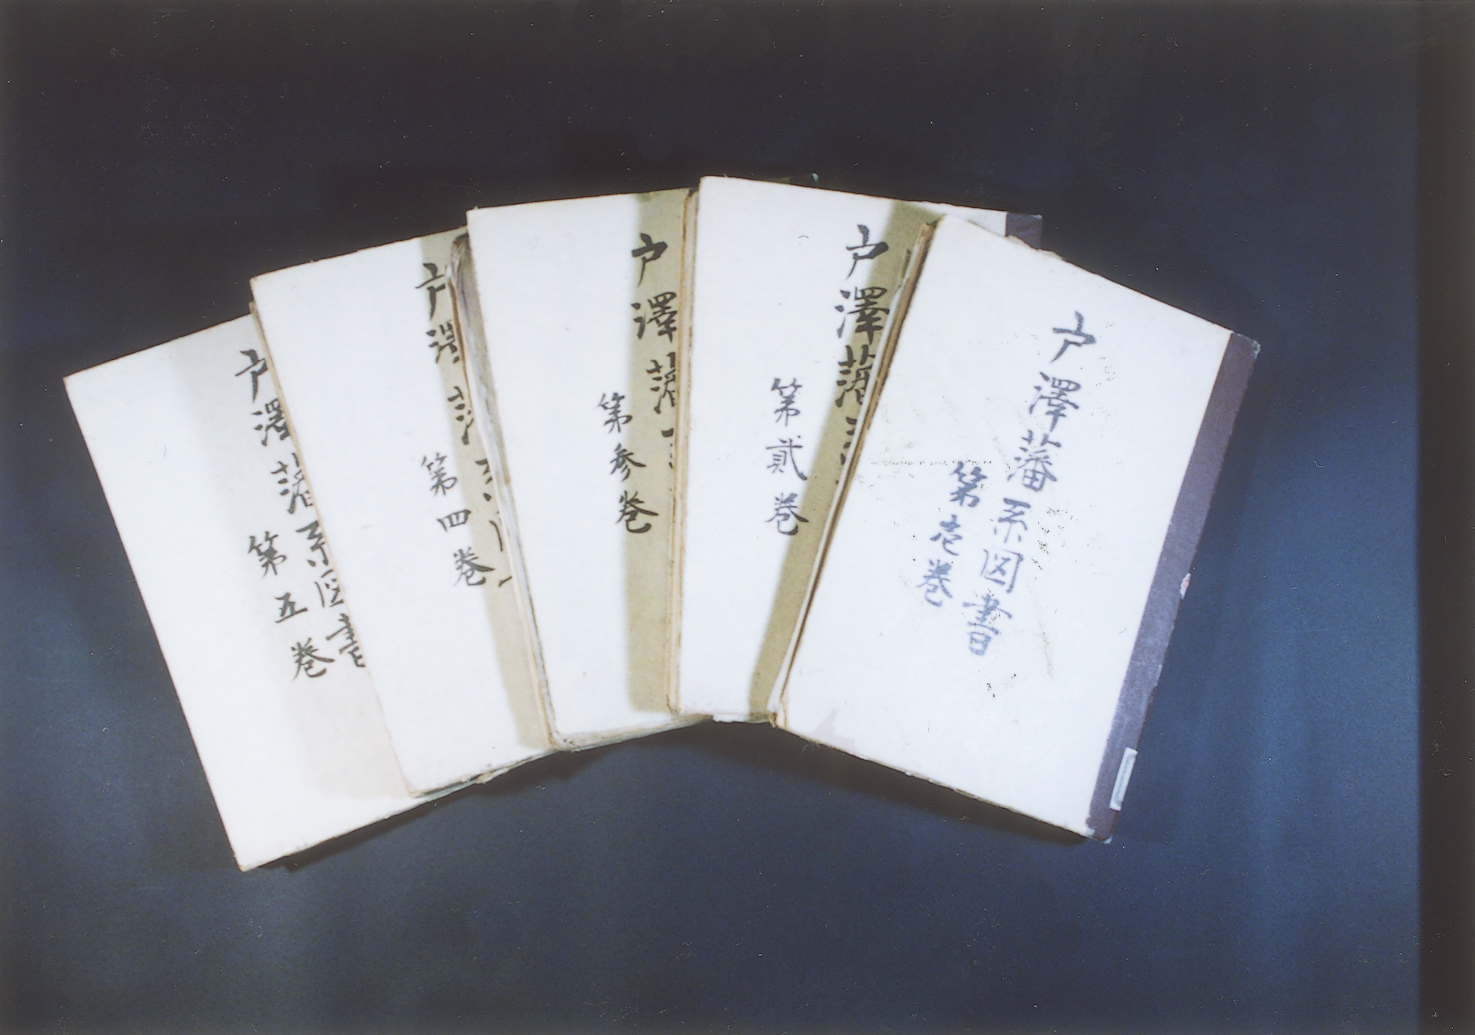 戸澤藩系図書
第壱巻
戸澤藩系
第貳巻
戸澤藩
第参巻
戸澤藩系
第四巻
戸澤藩系図書
第五巻